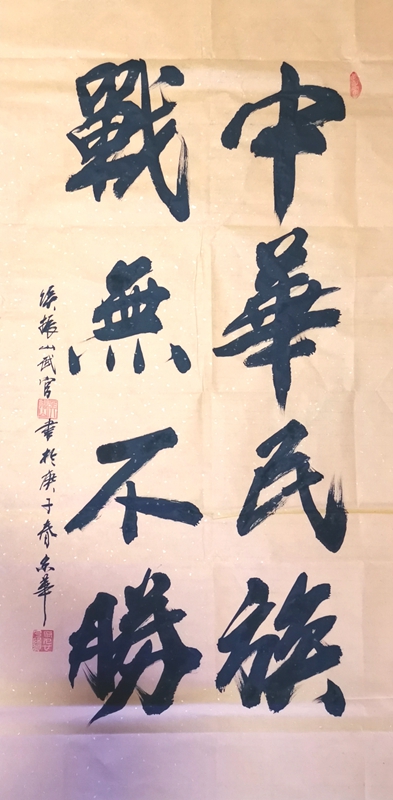 中華民族
戰無不勝
張山武官
書於庚子春